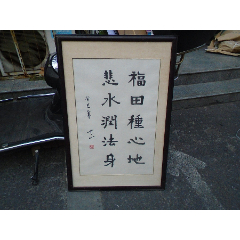 福田種心地
慧水潤法身